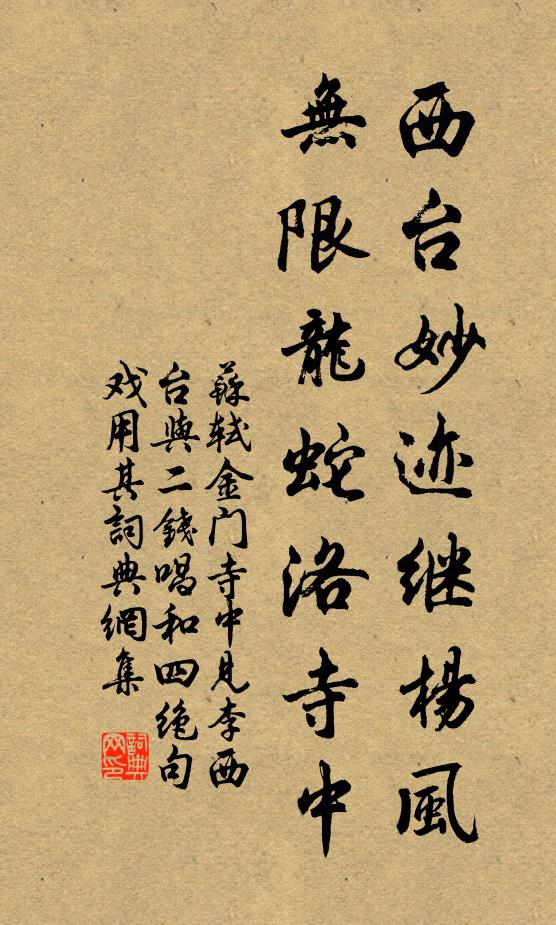 西台妙迹继楊風
無限龍蛇洛寺中
蘇轼金门寺中見李西
台與二錢唱和四绝句
戏用其詞典網集
詞典网印